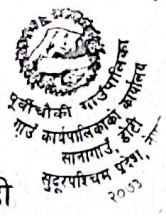 पूर्वीचौकी गाउँपालिका
गाउँ कार्यपालिकाको कार्यालय
सानागाउँ, डोटी
सुदूरपश्चिम प्रदेश,
२०७३